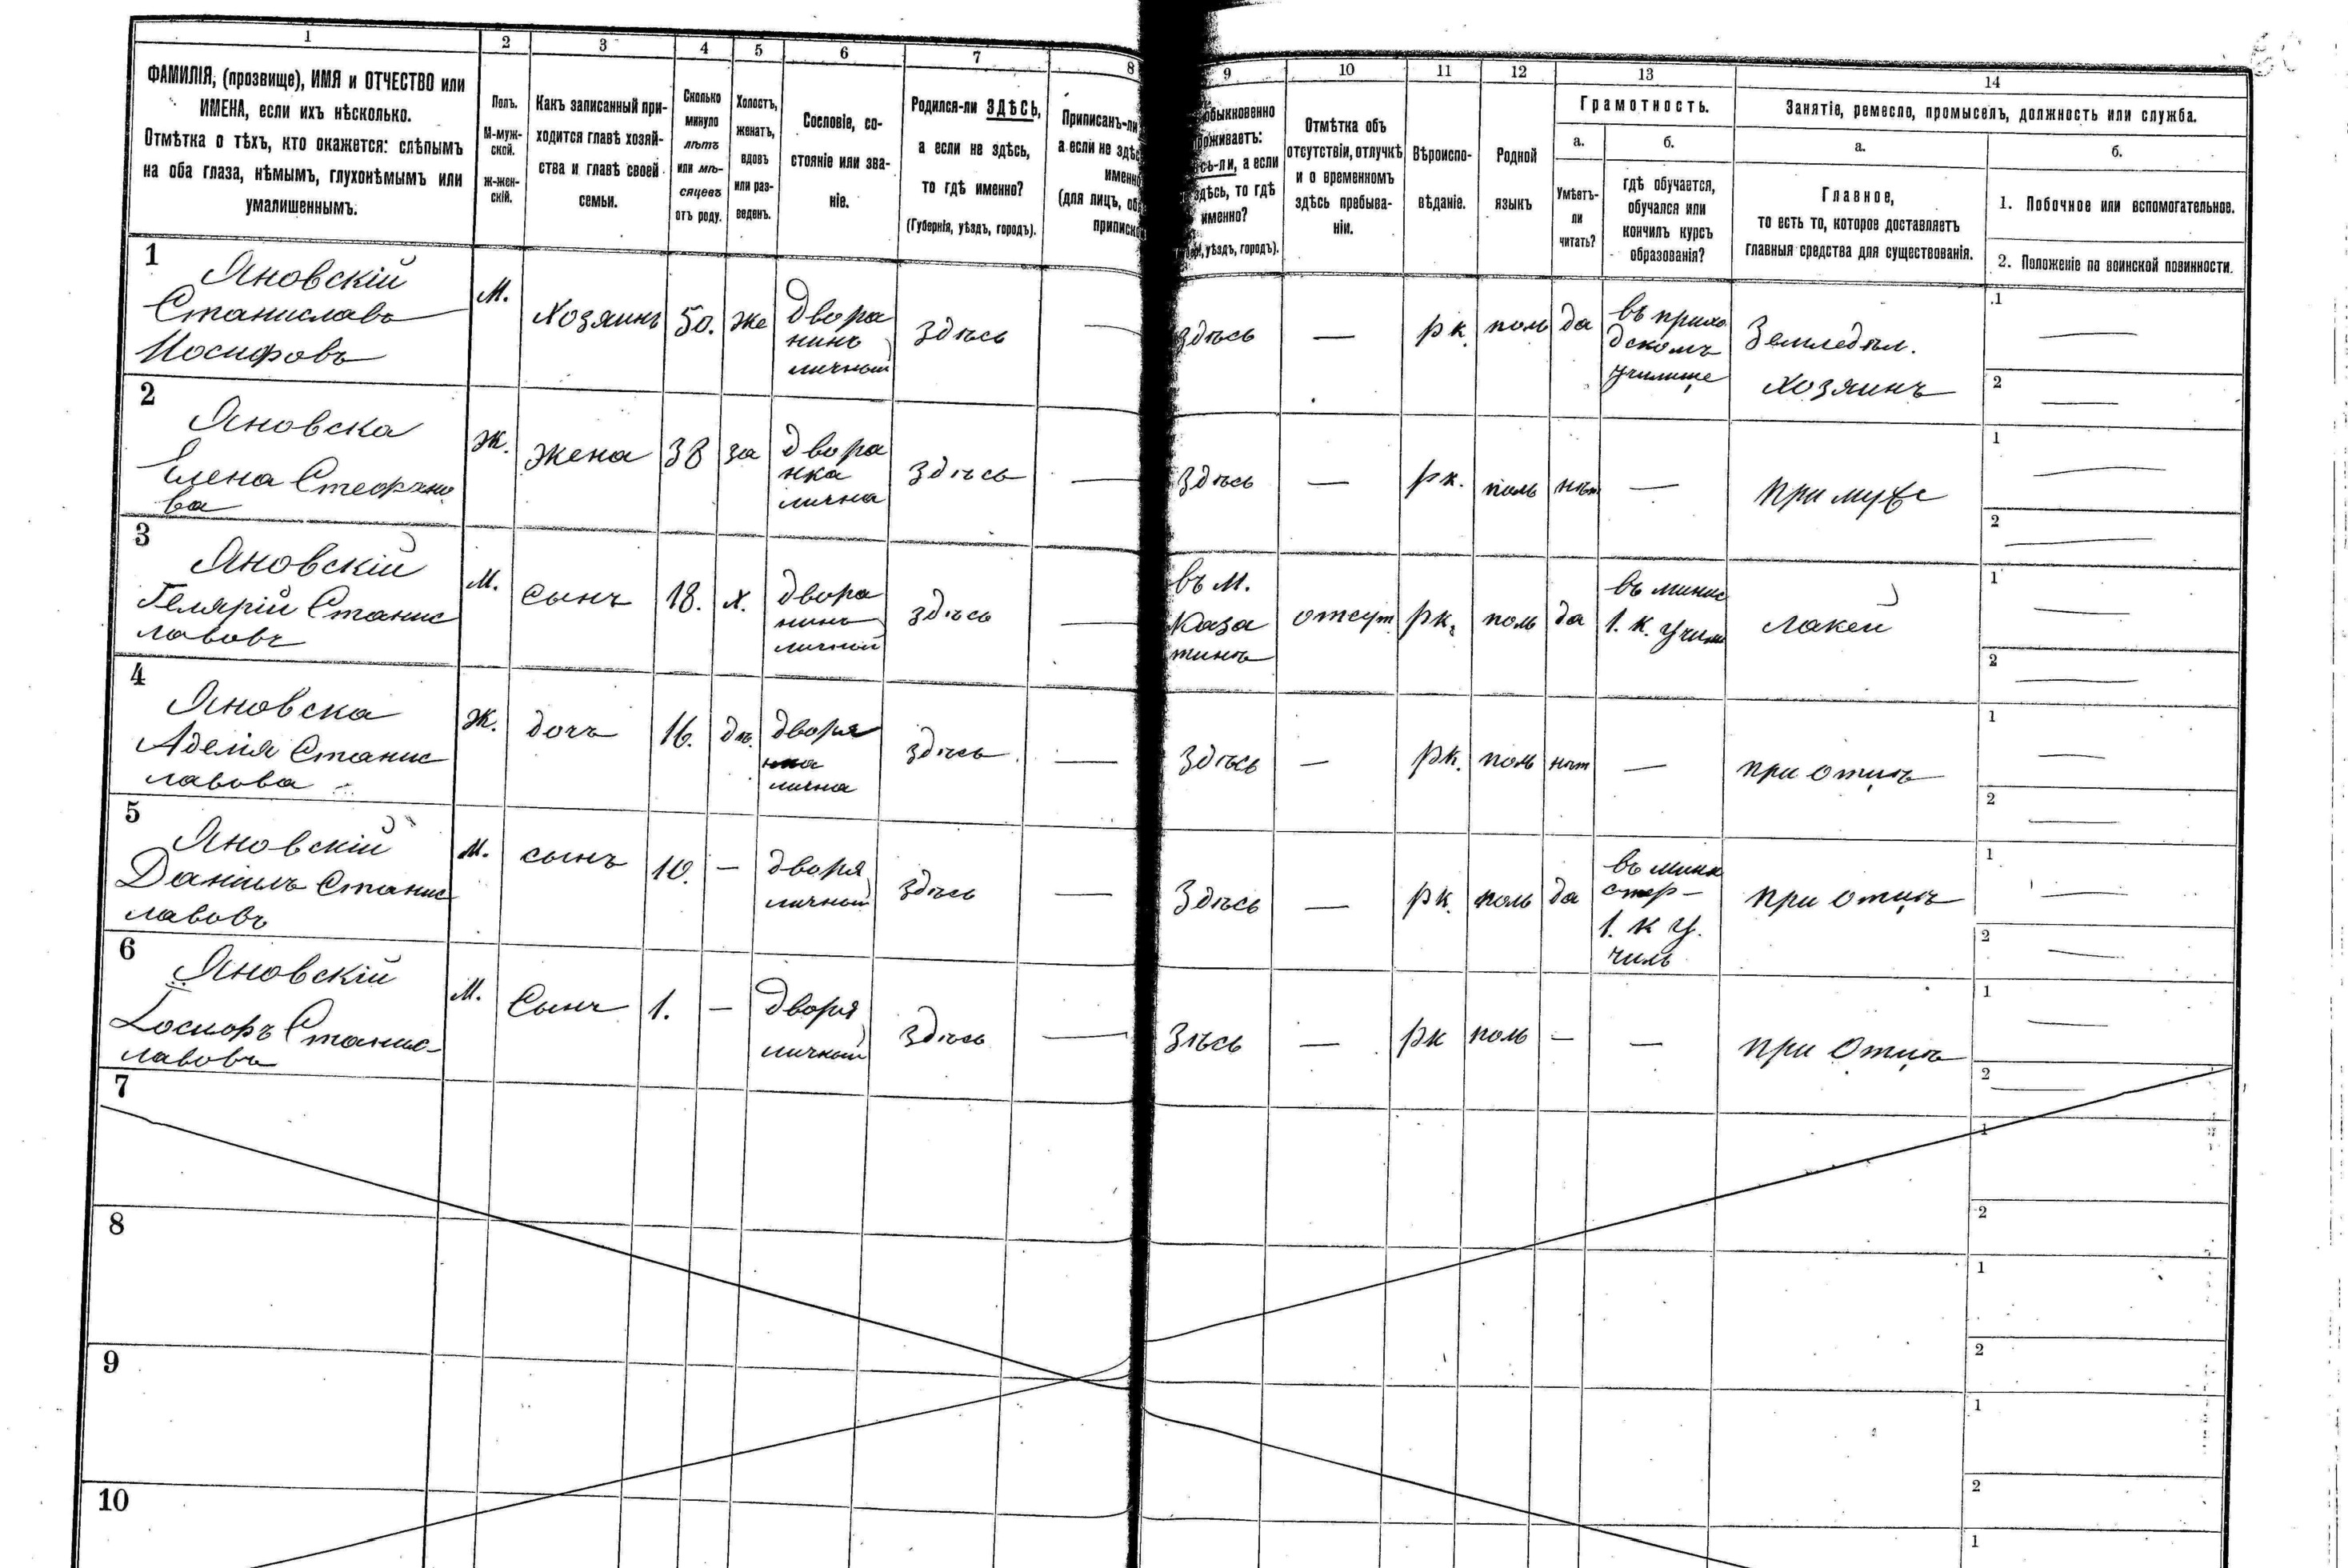 1 2 3 4 5 6 7 8 9 10 11 12 13 14
ФАМИЛІЯ, (прозвище), ИМЯ и ОТЧЕСТВО или
ИМЕНА, если ихъ нѣсколько.
Отмѣтка о тѣхъ, кто окажется: слѣпымъ
на оба глаза, нѣмымъ, глухонѣмымъ или
умалишеннымъ.
Полъ.
М-муж-
ской.
Ж-жен-
скій.
Какъ записанный при-
ходится главѣ хозяй-
ства и главѣ своей
семьи.
Сколько
минуло
лѣтъ
или мѣ-
сяцевъ
отъ роду.
Холостъ,
женатъ,
вдовъ
или раз-
веденъ.
Сословіе, со-
стояніе или зва-
ніе.
Родился-ли ЗДѢСЬ,
а если не здѣсь,
то гдѣ именно?
(Губернія, уѣздъ, городъ).
Приписанъ-ли
а если не здѣс
именно
(для лицъ, об
приписк
обыкновенно
роживаетъ:
сь-ли, а если
здѣсь, то гдѣ
именно?
уѣздъ, городъ).
Отмѣтка объ
отсутствіи, отлучкѣ
и о временномъ
здѣсь пребыва-
ніи.
Вѣроиспо-
вѣданіе.
Родной
языкъ
Грамотность.
а.
Умѣетъ-
ли
читать?
б.
гдѣ обучается,
обучался или
кончилъ курсъ
образованія?
Занятіе, ремесло, промыселъ, должность или служба.
а.
Главное,
то есть то, которое доставляетъ
главныя средства для существованія.
б.
1. Побочное или вспомогательное.
2. Положеніе по воинской повинности.
1
Яновскій
Станиславъ
Іосифовъ
М.
Хозяинъ
50.
же
двора
нинъ
личный
здѣсь
—
здѣсь
—
рк.
поль
да
въ прихо
дскомъ
училище
Земледѣл.
хозяинъ
1 —
2 —
2
Яновска
Елена Стефано
ва
Ж.
жена
38
за
двора
нка
лична
здѣсь
—
здѣсь
—
рк.
поль
нѣт
—
при муже
1 —
2 —
3
Яновскій
Гелярій Станис
лавовъ
М.
сынъ
18.
х.
двора
нинъ
личный
здѣсь
—
въ м.
Каза
тинѣ
отсут
рк.
поль
да
въ минис
1. к. учили
лакей
1 —
2 —
4
Яновска
Аделія Станис
лавова
Ж.
дочь
16.
дѣ.
дворя
нка
лична
здѣсь
—
здѣсь
—
рк.
поль
нѣт
—
при отцѣ
1 —
2 —
5
Яновскій
Даніилъ Станис
лавовъ
М.
сынъ
10.
—
дворя
личный
здѣсь
—
здѣсь
—
рк.
поль
да
въ мини
стер-
1. к у.
чиль
при отцѣ
1 —
2 —
6
Яновскій
Іосифъ Станис-
лавовъ
М.
Сынъ
1.
—
дворя
личный
здѣсь
—
зѣсь
—
рк
поль
—
—
при Отцѣ
1 —
2 —
7
1
2
8
1
2
9
1
2
10
1